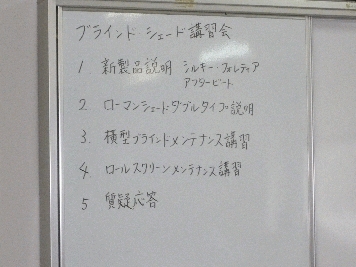 ブラインド・シェード講習会
1 新製品説明 シルキー・フォレティア
アフタービート
2 ローマンシェードダブルタイプ説明
3. 横型ブラインドメンテナンス講習
4. ロールスクリーンメンテナンス講習
5 質疑応答